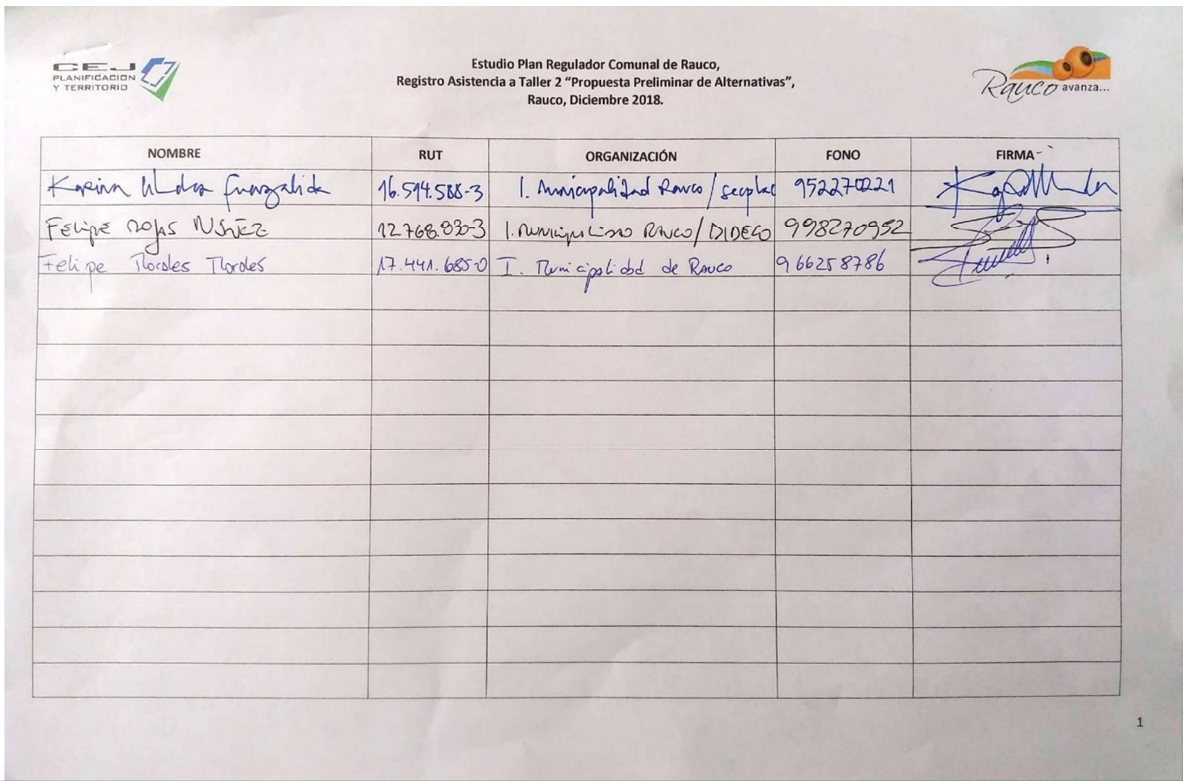 CEJ
PLANIFICACION
Y TERRITORIO
Estudio Plan Regulador Comunal de Rauco,
Registro Asistencia a Taller 2 “Propuesta Preliminar de Alternativas”,
Rauco, Diciembre 2018.
Rauco avanza...
NOMBRE RUT ORGANIZACIÓN FONO FIRMA
Karina Fuenzalida 16.594.588-3 I. Municipalidad Rauco / Secplac 952270221
Felipe Rojas Núñez I. Municipalidad Rauco / DIDECO 998270952
Felipe 17.441.685-0 I. Municipalidad de Rauco 966258786
1